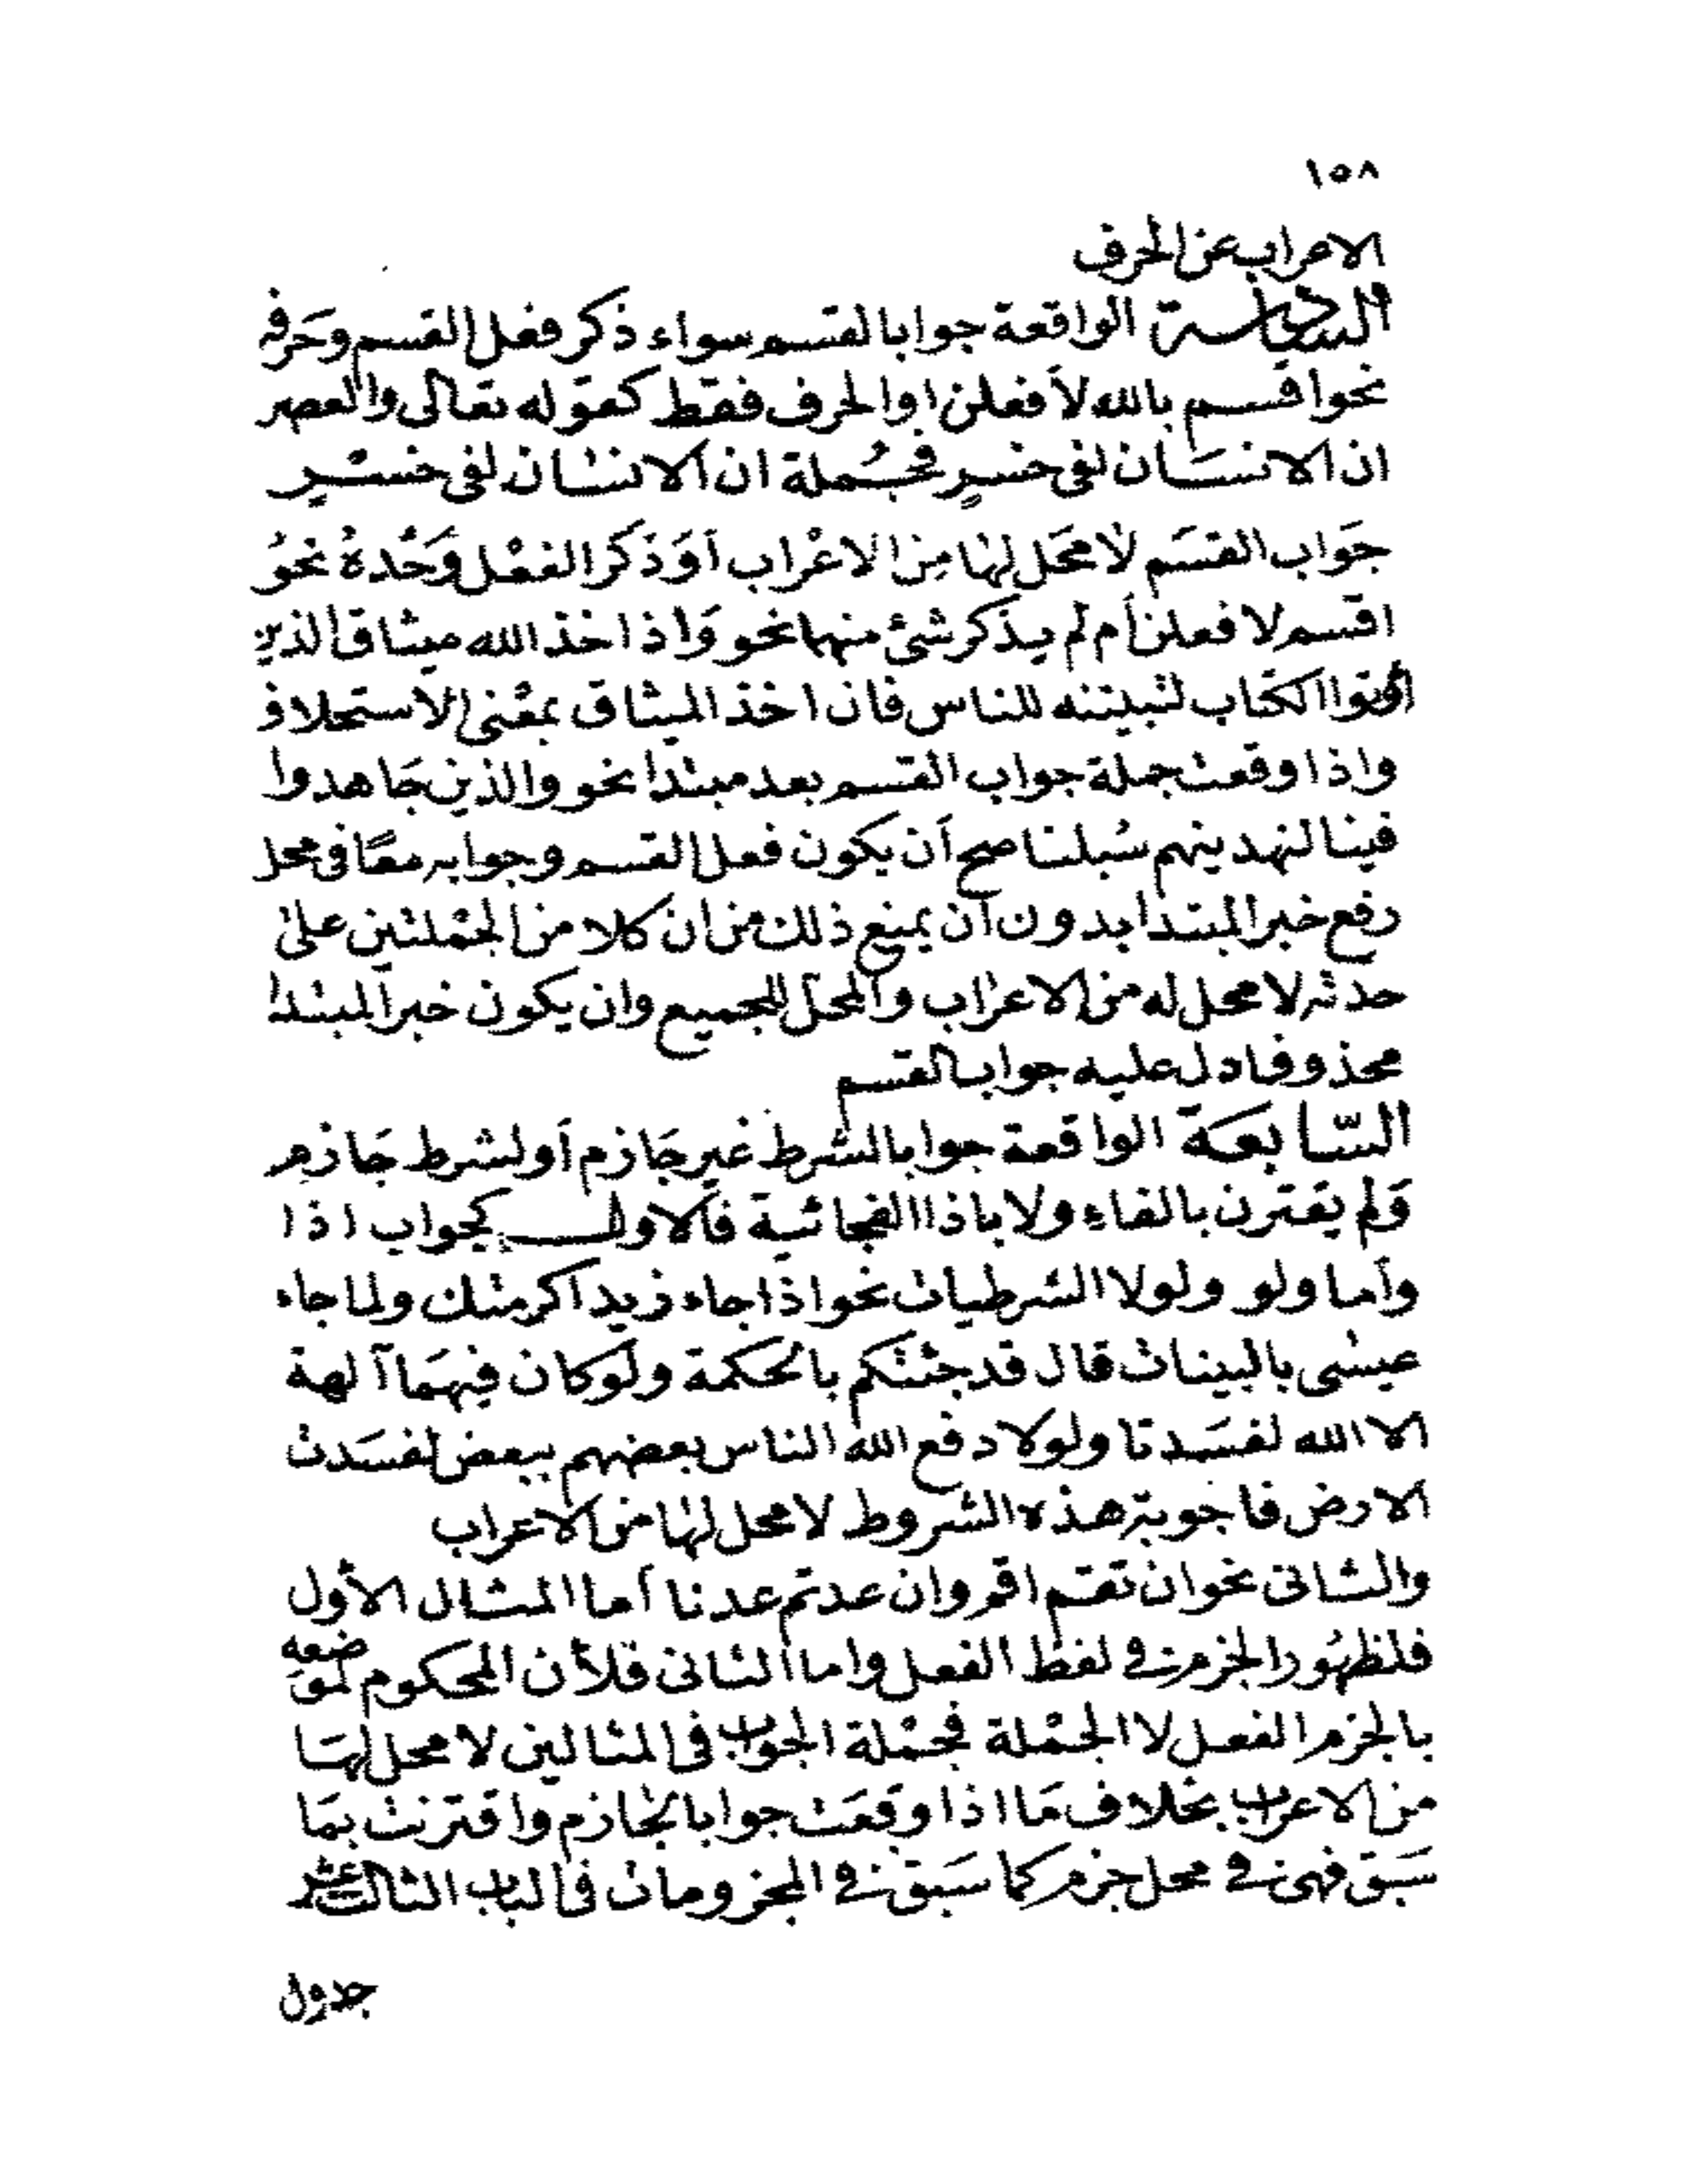 ١٥٨
الاعراب عن الحرف
السادسة الواقعة جوابا لقسم سواء ذكر فعل القسم وحَرفه
نحو اقسم بالله لأفعلن او الحرف فقط كقوله تعالى والعصر
ان الانسَان لفى خسرٍ فجُملة ان الانسان لفى خسر
جَواب القسَم لا محَل لها مِن الاعْراب أوَ ذكَر الفعْل وَحْدهُ نحوُ
اقسم لافعلن أم لم يذكر شئ منهما نحو وَاذ اخذ الله ميثاق الذين
اُوتوا الكتاب لتبيننه للناس فان اخذ الميثاق بمعْنى الاستحلاف
واذا وقعت جملة جواب القسم بعد مبتدا نحو والذين جَاهدوا
فينا لنهدينهم سُبلنا صح أن يكون فعل القسم وجوابه معًا فى محل
رفع خبر المبتدا بدون أن يمنع ذلك من ان كلا من الجمْلتين على
حدته لا محل له من الاعراب والمحلّ للجميع وان يكون خبر المبتدا
محذوفا دل عليه جواب القسم
السّابعَة الواقعة جوابا لشرط غير جَازم أو لشرط جَازم
وَلم يقترن بالفاء ولا باذا الفجائية فالاول كجواب اذا
وأما ولو ولولا الشرطيات نحو اذا جاء زيد اكرمتك ولما جاء
عيسى بالبينات قال قد جئتكم بالحكمة ولو كان فيهمَا آلهة
الا الله لفسَدتا ولولا دفع الله الناس بعضهم ببعض لفسَدت
الارض فاجوبة هذه الشروط لا محل لها من الاعراب
والثانى نحو ان تقم اقم وان عدتم عدنا أما المثال الأول
فلظهُور الجزم فى لفظ الفعل واما الثانى فلأن المحكوم لموضعه
بالجزم الفعل لا الجمْلة فجمْلة الجواب فى المثالين لا محل لهَا
من الاعراب بخلاف مَا اذا وقعَت جوابا لجازم واقترنت بمَا
سَبق فهى فى محل جزم كما سَبق فى المجزومات فى الباب الثالث عشر
جلاول